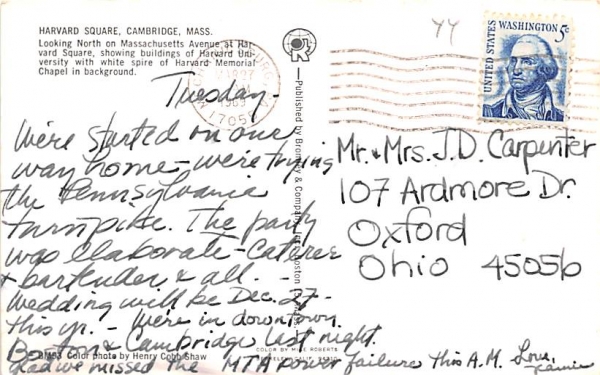 HARVARD SQUARE, CAMBRIDGE, MASS.
Looking North on Massachusetts Avenue at Har-
vard Square, showing buildings of Harvard Uni-
versity with white spire of Harvard Memorial
Chapel in background.
Tuesday-
We're started on our
way home - we're trying
the Pennsylvania
turnpike. The party
was elaborate - caterer
+ bartender & all. -
Wedding will be Dec. 27-
this yr. - We're in downtown
Boston & Cambridge last night.
Glad we missed the MTA power failure this A.M. Love,
BM53 Color photo by Henry Cobb Shaw
COLOR BY MIKE ROBERTS
Published by Bromley & Company, Inc., Boston
1969
17055
44
UNITED STATES
WASHINGTON 5c
Mr. & Mrs. J.D. Carpenter
107 Ardmore Dr.
Oxford
Ohio 45056